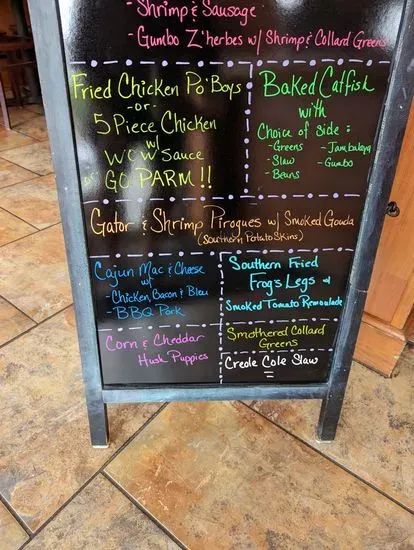 - Shrimp & Sausage
- Gumbo Z'herbes w/ Shrimp & Collard Greens
Fried Chicken Po'Boys
- or -
5 Piece Chicken
w/
WOW Sauce
or GO PARM !!
Baked Catfish
with
Choice of Side :
- Greens
- Slaw
- Beans
- Jambalaya
- Gumbo
Gator & Shrimp Pirogues w/ Smoked Gouda
(Southern Potato Skins)
Cajun Mac & Cheese
w/
- Chicken, Bacon & Bleu
- BBQ Pork
Southern Fried
Frog's Legs w/
Smoked Tomato Remoulade
Corn & Cheddar
Husk Puppies
Smothered Collard
Greens
Creole Cole Slaw